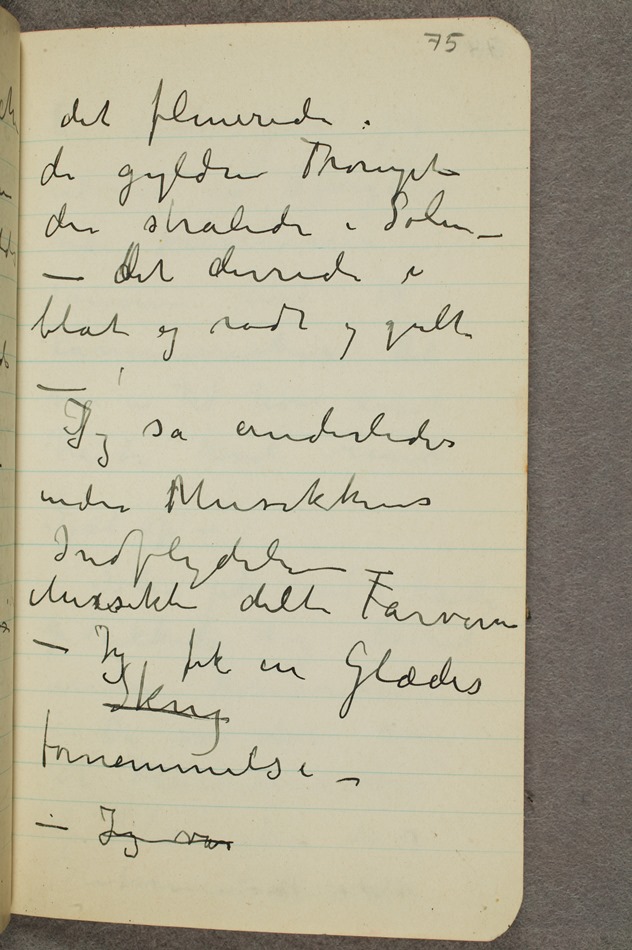 75
det flimrede .
de gyldne Trompet
der stralede i Solen –
– det dirrede i
blåt og rødt og gult
–
Jeg så anderledes
under Musikkens
Indflydelsen –
Musikken delte Farverne
– Jeg fik en Glædes
Skrig
fornemmelse –
– Jeg var